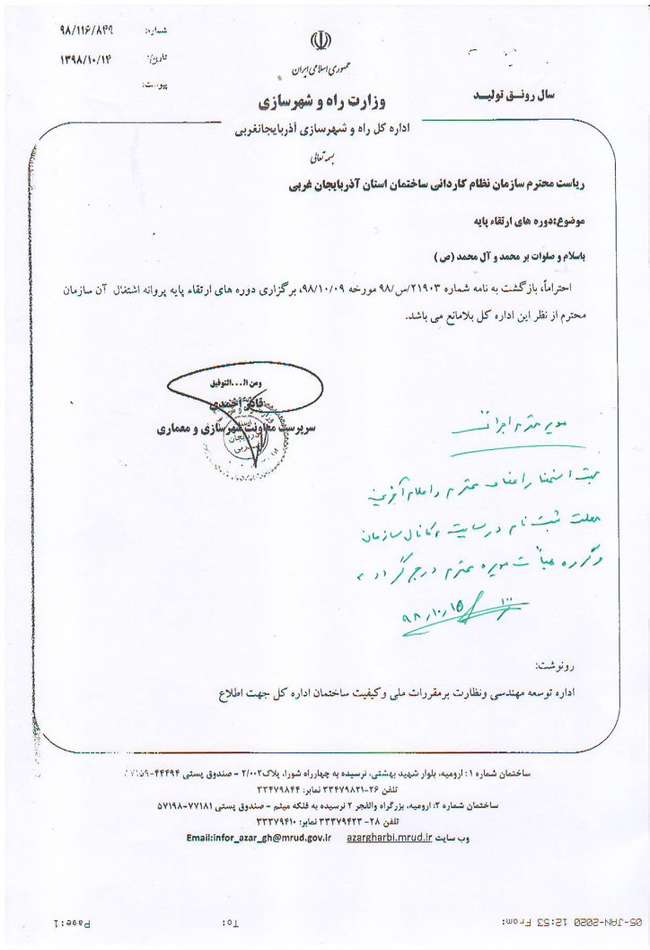 شماره: ۹۸/۱۱۶/۸۴۹
تاریخ: ۱۳۹۸/۱۰/۱۴
پیوست:
جمهوری اسلامی ایران
وزارت راه و شهرسازی
اداره کل راه و شهرسازی آذربایجانغربی
سال رونق تولید
بسمه تعالی
ریاست محترم سازمان نظام کاردانی ساختمان استان آذربایجان غربی
موضوع:دوره های ارتقاء پایه
باسلام و صلوات بر محمد و آل محمد (ص)
احتراماً، بازگشت به نامه شماره ۲۱۹۰۳/س/۹۸ مورخه ۹۸/۱۰/۰۹، برگزاری دوره های ارتقاء پایه پروانه اشتغال آن سازمان
محترم از نظر این اداره کل بلامانع می باشد.
ومن ا...التوفیق
قادر احمدی
سرپرست معاونت شهرسازی و معماری
مدیر محترم اجرائی
جهت استحضار اعضاء محترم و اعلام آخرین
مهلت ثبت نام در سایت و کانال سازمان
و گروه هیأت مدیره محترم درج گردد
۹۸/۱۰/۱۵
رونوشت:
اداره توسعه مهندسی ونظارت برمقررات ملی وکیفیت ساختمان اداره کل جهت اطلاع
ساختمان شماره ۱: ارومیه، بلوار شهید بهشتی، نرسیده به چهارراه شورا، پلاک۲/۰۰۲ - صندوق پستی ۴۴۴۹۴-۵۷۱۵۹
تلفن ۲۶-۳۳۴۷۹۸۲۱ نمابر: ۳۳۴۷۹۸۴۴
ساختمان شماره ۲: ارومیه، بزرگراه والفجر ۲ نرسیده به فلکه میثم - صندوق پستی ۷۷۱۸۱-۵۷۱۹۸
تلفن ۲۸- ۳۳۳۷۹۴۲۳ نمابر: ۳۳۳۷۹۴۱۰
وب سایت azargharbi.mrud.ir Email:infor_azar_gh@mrud.gov.ir
05-JAN-2020 12:53 From: To: Page:1